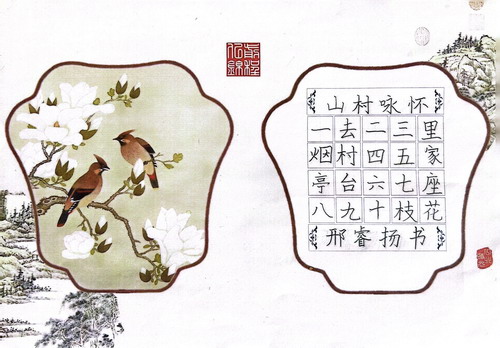 山村咏怀
一去二三里
烟村四五家
亭台六七座
八九十枝花
邢睿扬书